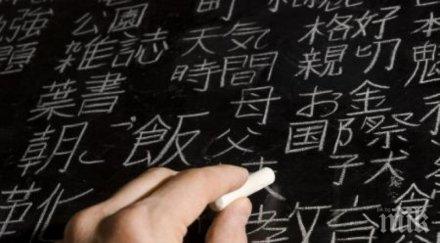 題
強
公園
雑誌
葉書
朝ご飯
革化
町
天気
時間
母
父
格好
親切
お金
国際
子犬
教育
魅